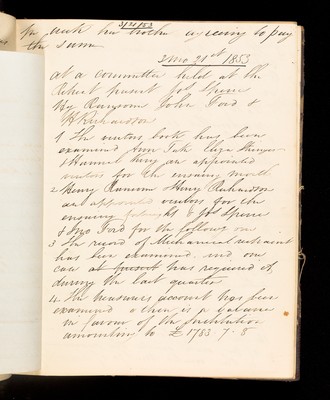 3/21/53
per week her brother agreeing to pay
the same
3 mo 21st 1853
at a committee held at the
Retreat present Jos Spence
Hy Ransome John Ford &
H Richardson
1 The visitors book has been
examined Ann Tuke Eliza
& Hannah are appointed
visitors for the ensuing month
2 Henry Ransome Henry Richardson
are appointed visitors for the
ensuing fortnight & Jos Spence
& Jno Ford for the following one
3 The record of Mechanical restraint
has been examined and one
case at present has required it
during the last quarter
4 The treasurers account has been
examined & there is a balance
in favour of the Institution
amounting to £ 1783 7 8